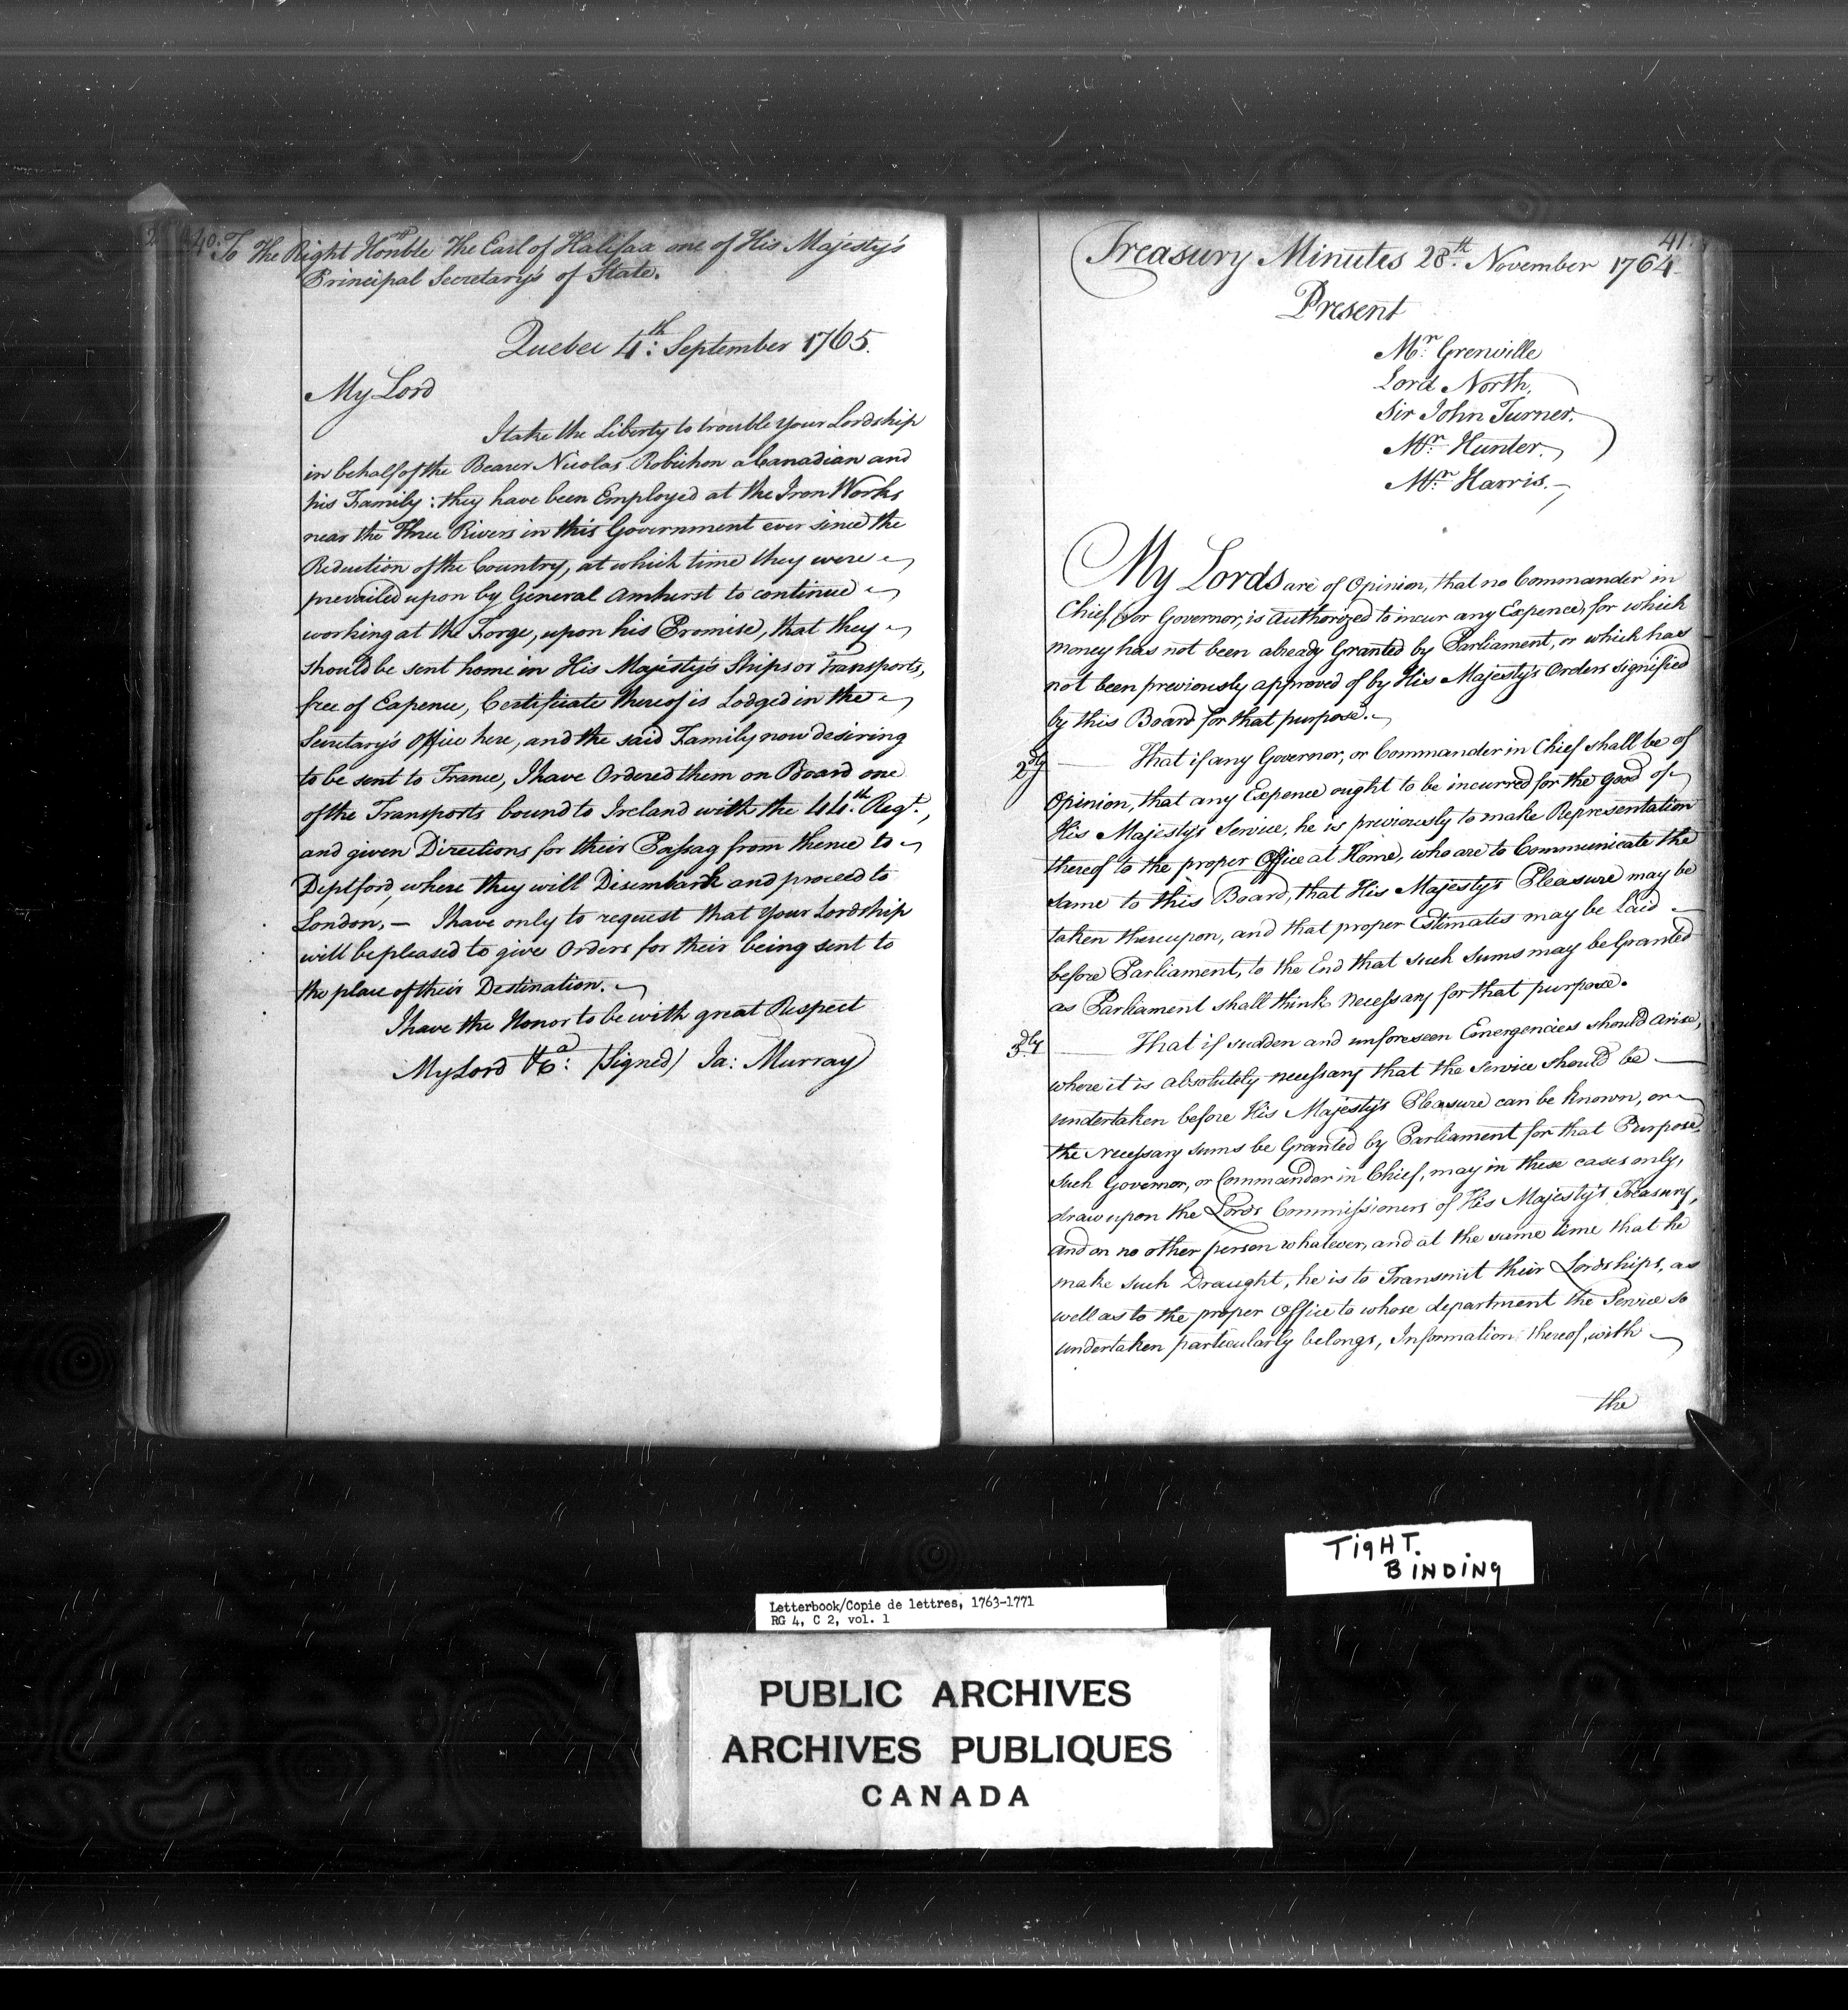 40.
To The Right Honble The Earl of Halifax one of His Majesty's
Principal Secretary's of State.
Quebec 4th: September 1765.
My Lord
I take the Liberty to trouble Your Lordship
in behalf of the Bearer Nicolas Robichon a Canadian and
his Family: they have been Employed at the Iron Works
near the Three Rivers in this Government ever since the
Reduction of the Country, at which time they were
prevailed upon by General Amhurst to continue
working at the Forge, upon his Promise, that they
should be sent home in His Majesty's Ships or Transports,
free of Expence, Certificate thereof is Lodged in the
Secretary's Office here, and the said Family now desiring
to be sent to France, I have Ordered them on Board one
of the Transports bound to Ireland with the 44th: Regt.,
and given Directions for their Passag from thence to
Deptford, where they will Disembark and proceed to
London, — I have only to request that Your Lordship
will be pleased to give Orders for their being sent to
the place of their Destination.
I have the Honor to be with great Respect
My Lord &ca: (Signed) Ja: Murray
41.
Treasury Minutes 28th. November 1764
Present
Mr: Grenville
Lord North.
Sir John Turner.
Mr: Hunter.
Mr: Harris.
My Lords are of Opinion, that no Commander in
Chief, or Governor, is Authorized to incur any Expence, for which
money has not been already Granted by Parliament, or which has
not been previously approved of by His Majesty's Orders signified
by this Board for that purpose.
2dly That if any Governor, or Commander in Chief shall be of
Opinion, that any Expence ought to be incurred for the good of
His Majesty's Service, he is previously to make Representation
thereof to the proper Office at Home, who are to Communicate the
same to this Board, that His Majesty's Pleasure may be
taken thereupon, and that proper Estimates may be Laid
before Parliament, to the End that such Sums may be Granted
as Parliament shall think necessary for that purpose.
3dly That if sudden and unforeseen Emergencies should arise,
where it is absolutely necessary that the Service should be
undertaken before His Majesty's Pleasure can be known, or
the necessary sums be Granted by Parliament for that Purpose,
Such Governor, or Commander in Chief, may in these cases only,
draw upon the Lords Commissioners of His Majesty's Treasury,
and on no other person whatever, and at the same time that he
make such Draught, he is to Transmit their Lordships, as
well as to the proper Office to whose department the Service so
undertaken particularly belongs, Information thereof, with
the
TigHT.
BINDINg
Letterbook/Copie de lettres, 1763-1771
RG 4, C 2, vol. 1
PUBLIC ARCHIVES
ARCHIVES PUBLIQUES
CANADA